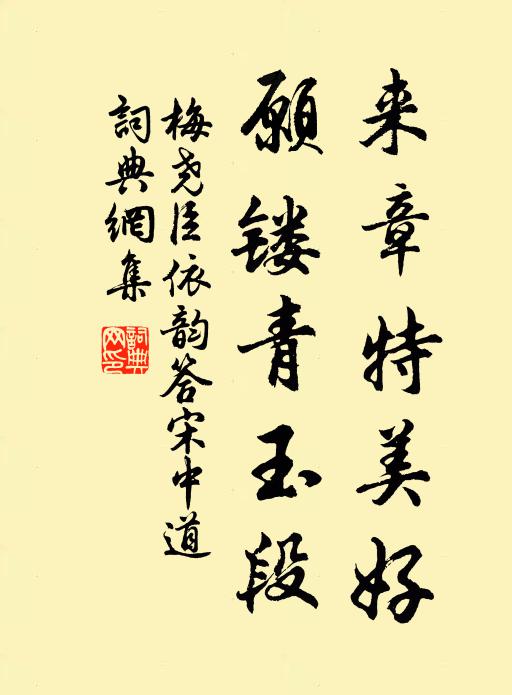 来章特美好
願镂青玉段
梅尧臣依韵答宋中道
詞典網集
詞典網印